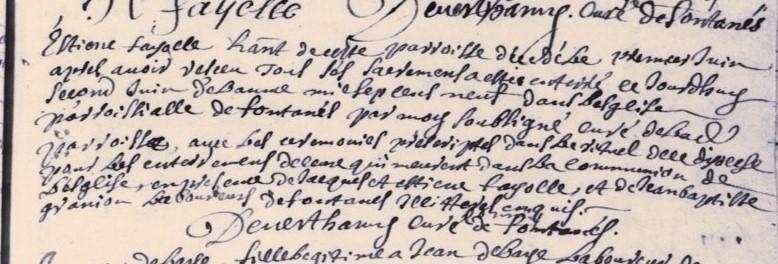 fayolle Deverthamy. curé de fontanés
Estiene fayolle hant de cette parroisse decedé le premier Juin
apres avoir receu tous les sacremens a esté enterré ce Jourdhuy
second Juin de l'année mil sept cens neuf dans l'eglise
parroissialle de fontanés par moy soubsigné curé de lad
parroisse, avec les ceremonies prescriptes dans le rituel de ce diocese
pour les enterremens de ceux qui meurent dans la communion de
l'eglise, en presence de Jacques et estiene fayolle, et de Jean baptiste
granjon laboureurs de fontanés illitterés enquis.
Deverthamy curé de fontanés.
fille legitime a Jean laboureur